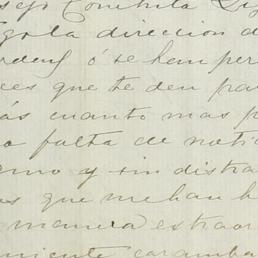 sejo Conchita
gota direccion d
ordenes ó se han per
ces que te den pa
ás cuanto mas p
o falta de noti
emo y sin distra
s que me han h
manera extraor
miente caramba